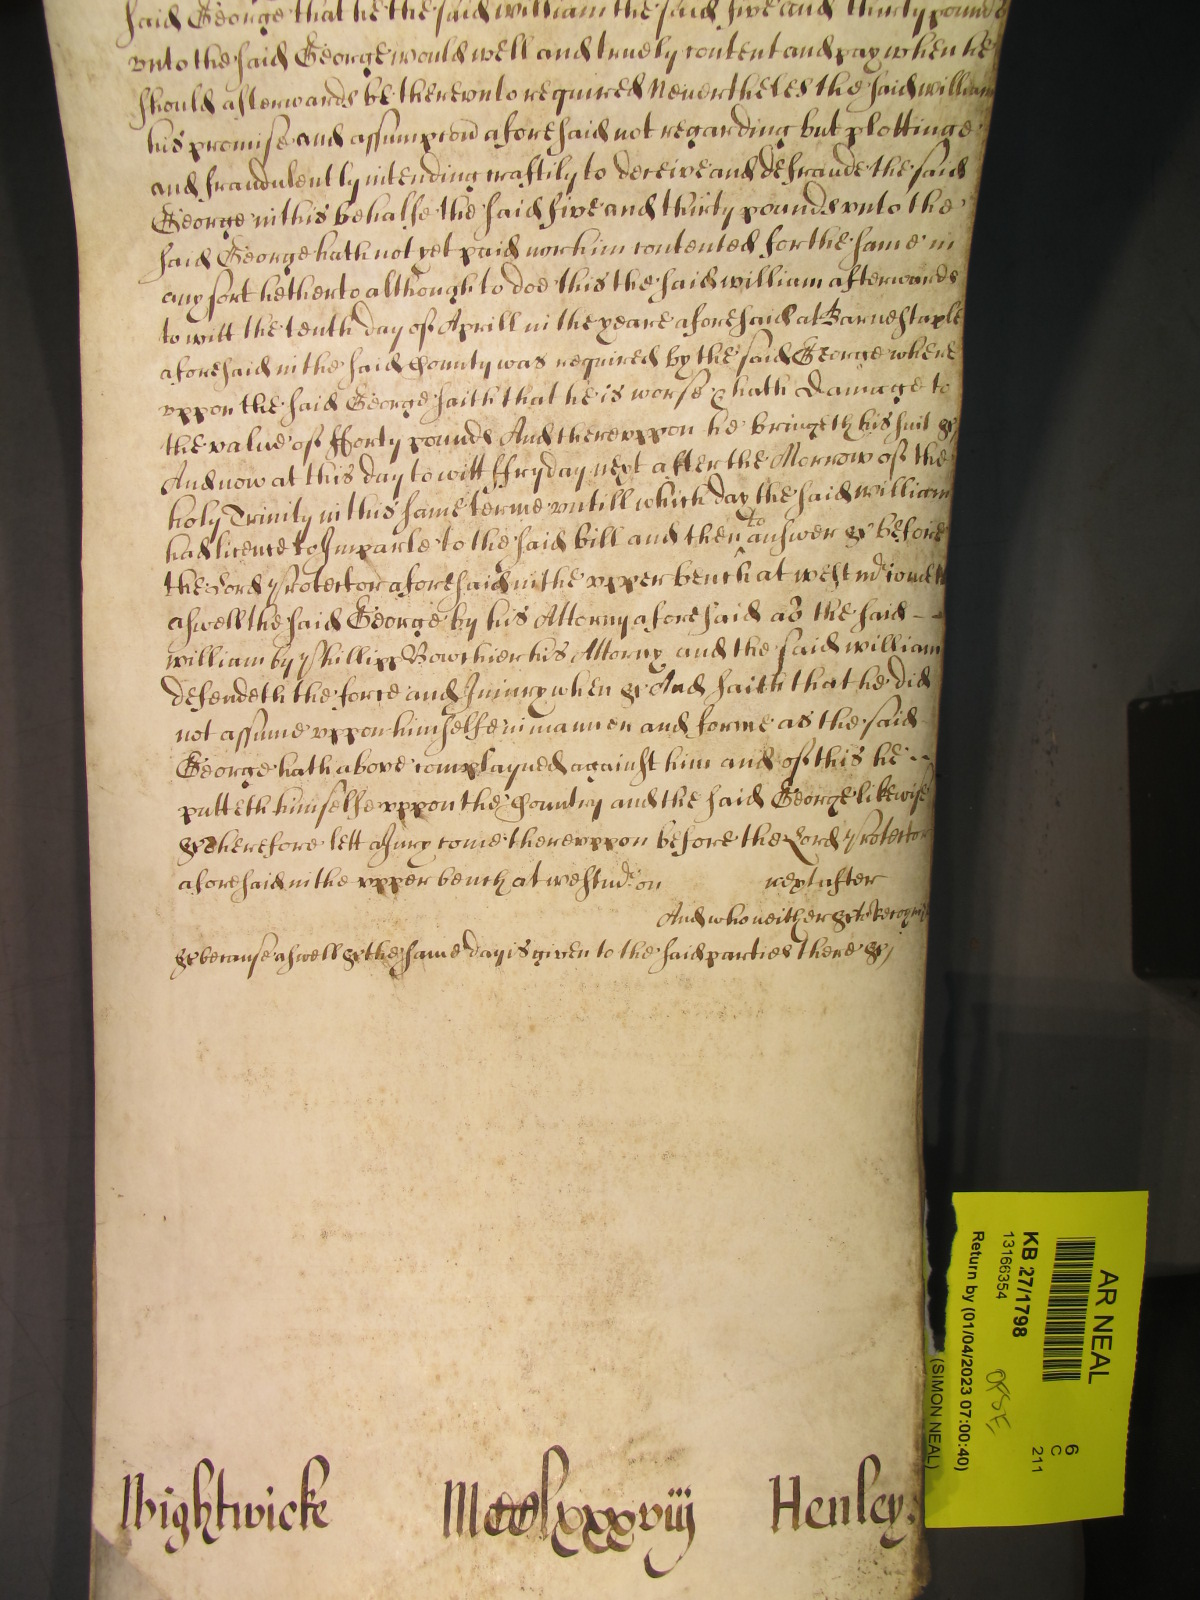 said George that he the said william the said five and thirty pounds
vnto the said George would well and truely content and pay when he
should afterwards be therevnto required Neuertheles the said william
his promise and assumpcon aforesaid not regarding but plottinge
and fraudulently intending craftily to deceive and defraude the said
George in this behalfe the said five and thirty pounds vnto the
said George hath not yet paid nor him contented for the same in
any sort hetherto although to doe this the said william afterwards
to witt the tenth day of Aprill in the yeare aforesaid at Barnestaple
aforesaid in the said County was required by the said George where
vppon the said George saith that he is worse & hath Damage to
the value of fforty pounds And therevppon he bringeth his suit &c
And now at this day to witt ffryday next after the Morrow of the
holy Trinity in this same terme vntill which day the said william
had licence to Imparle to the said bill and then to answer &c before
the Lord Protector aforesaid in the vpper bench at westmr come
aswell the said George by his Attorny aforesaid as the said
william by Phillipp Bowchier his Attorny and the said william
defendeth the force and Iniury when &c And saith that he did
not assume vppon himselfe in manner and forme as the said
George hath above complayned against him and of this he
putteth himselfe vppon the Country and the said George likewise
&c Therefore lett a Jury come therevppon before the Lord Protector
aforesaid in the vpper bench at westmr on next after
And who neither &c to Recognize
&c because aswell &c the same day is given to the said parties there &c
Wightwicke Mcccclxxxxviij Henley
AR NEAL
KB 27/1798
13166354
Return by (01/04/2023 07:00:40)
(SIMON NEAL)
6
C
211